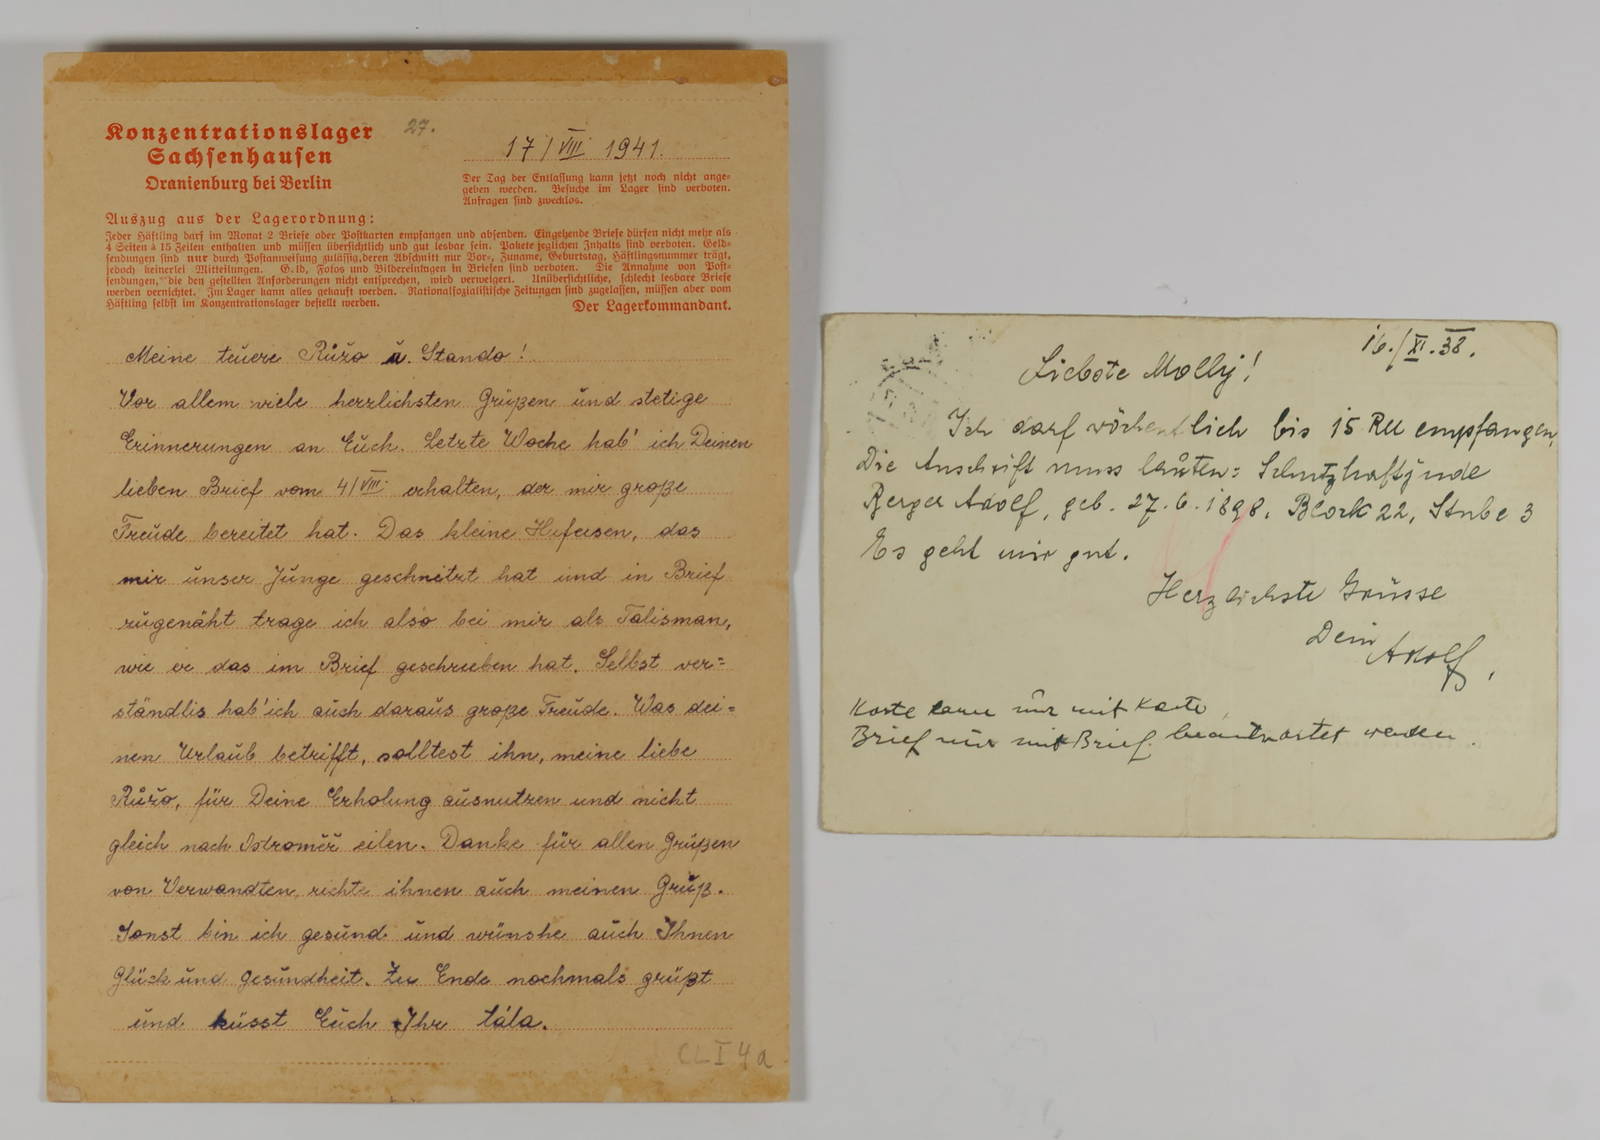 Konzentrationslager
Sachsenhausen
Oranienburg bei Berlin
27.
17/VIII 1941.
Der Tag der Entlassung kann jetzt noch nicht ange-
geben werden. Besuche im Lager sind verboten.
Anfragen sind zwecklos.
Auszug aus der Lagerordnung:
Jeder Häftling darf im Monat 2 Briefe oder Postkarten empfangen und absenden. Eingehende Briefe dürfen nicht mehr als
4 Seiten à 15 Zeilen enthalten und müssen übersichtlich und gut lesbar sein. Pakete jeglichen Inhalts sind verboten. Geld-
sendungen sind nur durch Postanweisung zulässig, deren Abschnitt nur Vor-, Zuname, Geburtstag, Häftlingsnummer trägt,
jedoch keinerlei Mitteilungen. G.ld, Fotos und Bildereinlagen in Briefen sind verboten. Die Annahme von Post-
sendungen, die den gestellten Anforderungen nicht entsprechen, wird verweigert. Unübersichtliche, schlecht lesbare Briefe
werden vernichtet. Im Lager kann alles gekauft werden. Nationalsozialistische Zeitungen sind zugelassen, müssen aber vom
Häftling selbst im Konzentrationslager bestellt werden.
Der Lagerkommandant.
Meine teuere Růžo u. Stando!
Vor allem viele herzlichsten Grüßen und stetige
Erinnerungen an Euch. Letzte Woche hab' ich Deinen
lieben Brief vom 4/VIII. erhalten, der mir große
Freude bereitet hat. Das kleine Hufeisen, das
mir unser Junge geschnitzt hat und in Brief
zugenäht trage ich also bei mir als Talisman,
wie er das im Brief geschrieben hat. Selbst ver=
ständlis hab' ich auch daraus große Freude. Was dei=
nen Urlaub betrifft, solltest ihn, meine liebe
Růžo, für Deine Erholung ausnutzen und nicht
gleich nach Ostroměř eilen. Danke für allen Grüßen
von Verwandten, richte ihnen auch meinen Gruß.
Sonst bin ich gesund und wünshe auch Ihnen
Glück und Gesundheit. Zu Ende nochmals grüßt
und küsst Euch Ihr táta.
CL I 4a
16./XI.38.
Liebste Molly!
Ich darf wöchentlich bis 15 RM empfangen,
Die Anschrift muss lauten: Schutzhaftjude
Berger Adolf, geb. 27.6.1898. Block 22, Stube 3
Es geht mir gut.
Herzlichste Grüsse
Dein
Adolf,
Karte kann nur mit Karte,
Brief nur mit Brief beantwortet werden.